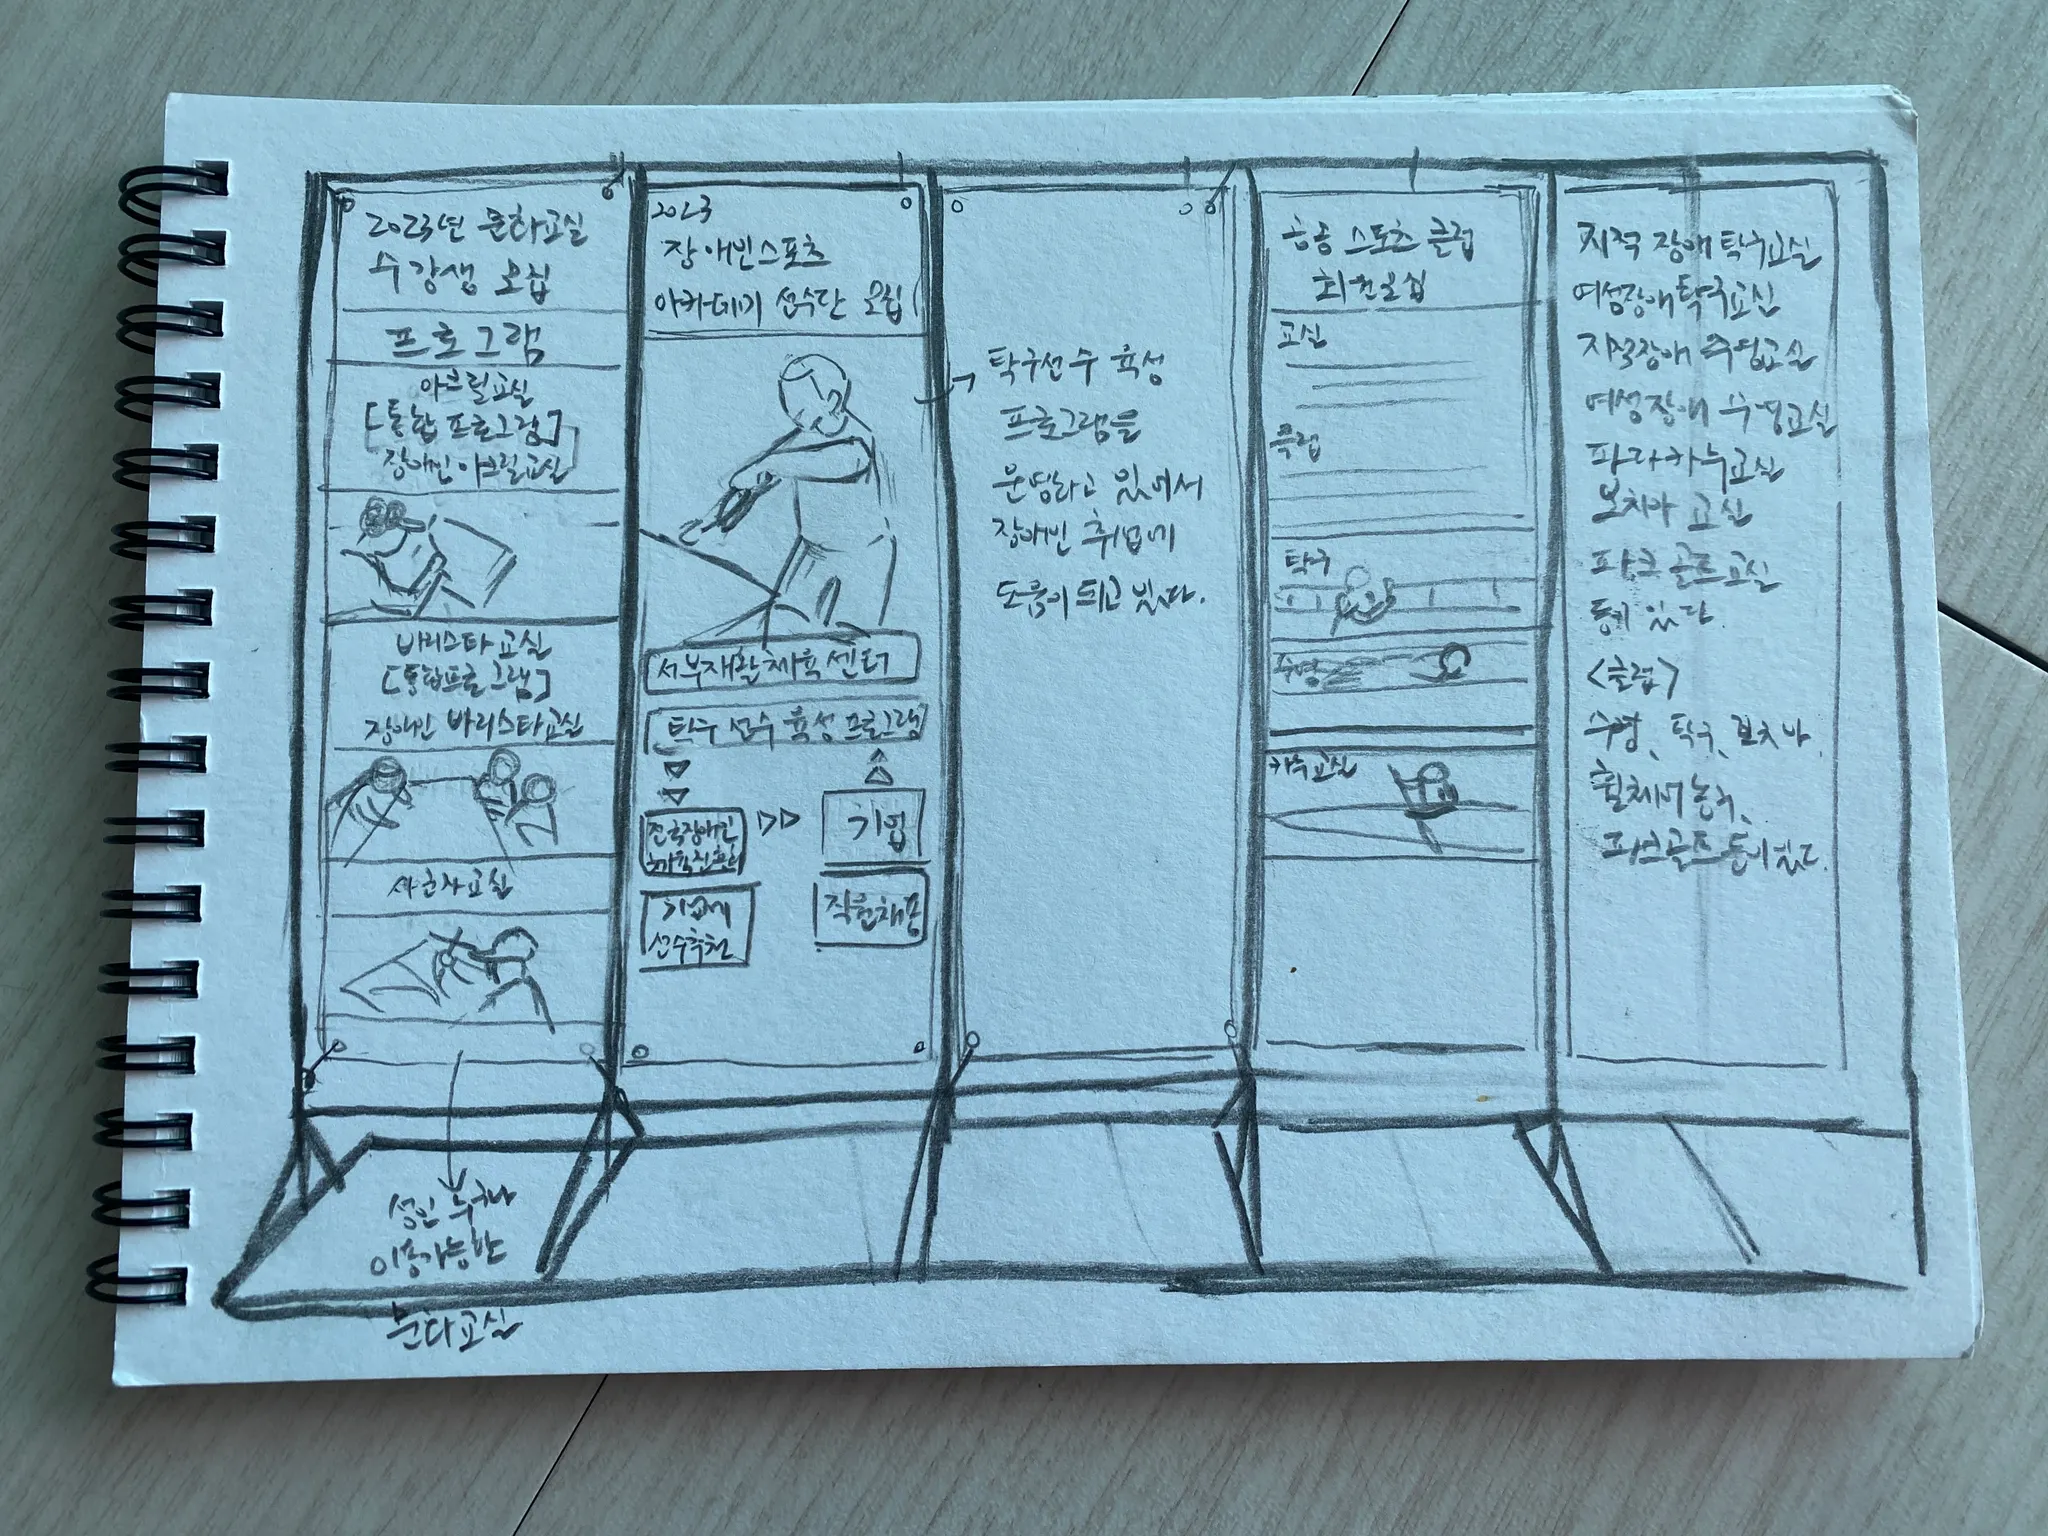 2023년 문화교실
수강생 모집
프로그램
아브릴교실
[통합 프로그램]
장애인 아브릴교실
바리스타교실
[통합프로그램]
장애인 바리스타교실
사군자교실
성인 누구나
이용가능한
문화교실
2023
장애인스포츠
아카데미 선수단 모집
서부재활체육센터
탁구 선수 육성 프로그램
전국장애인
체육진흥회
기업에
선수추천
기업
직원채용
탁구선수 육성
프로그램을
운영하고 있어서
장애인 취업에
도움이 되고 있다.
스포츠 클럽
회원모집
교실
클럽
탁구
수영
카누교실
지적 장애 탁구교실
여성장애 탁구교실
지적장애 수영교실
여성장애 수영교실
파라카누교실
보치아 교실
파크 골프교실
등이 있다.
<클럽>
수영, 탁구, 보치아,
휠체어 농구,
파크골프 등이 있다.